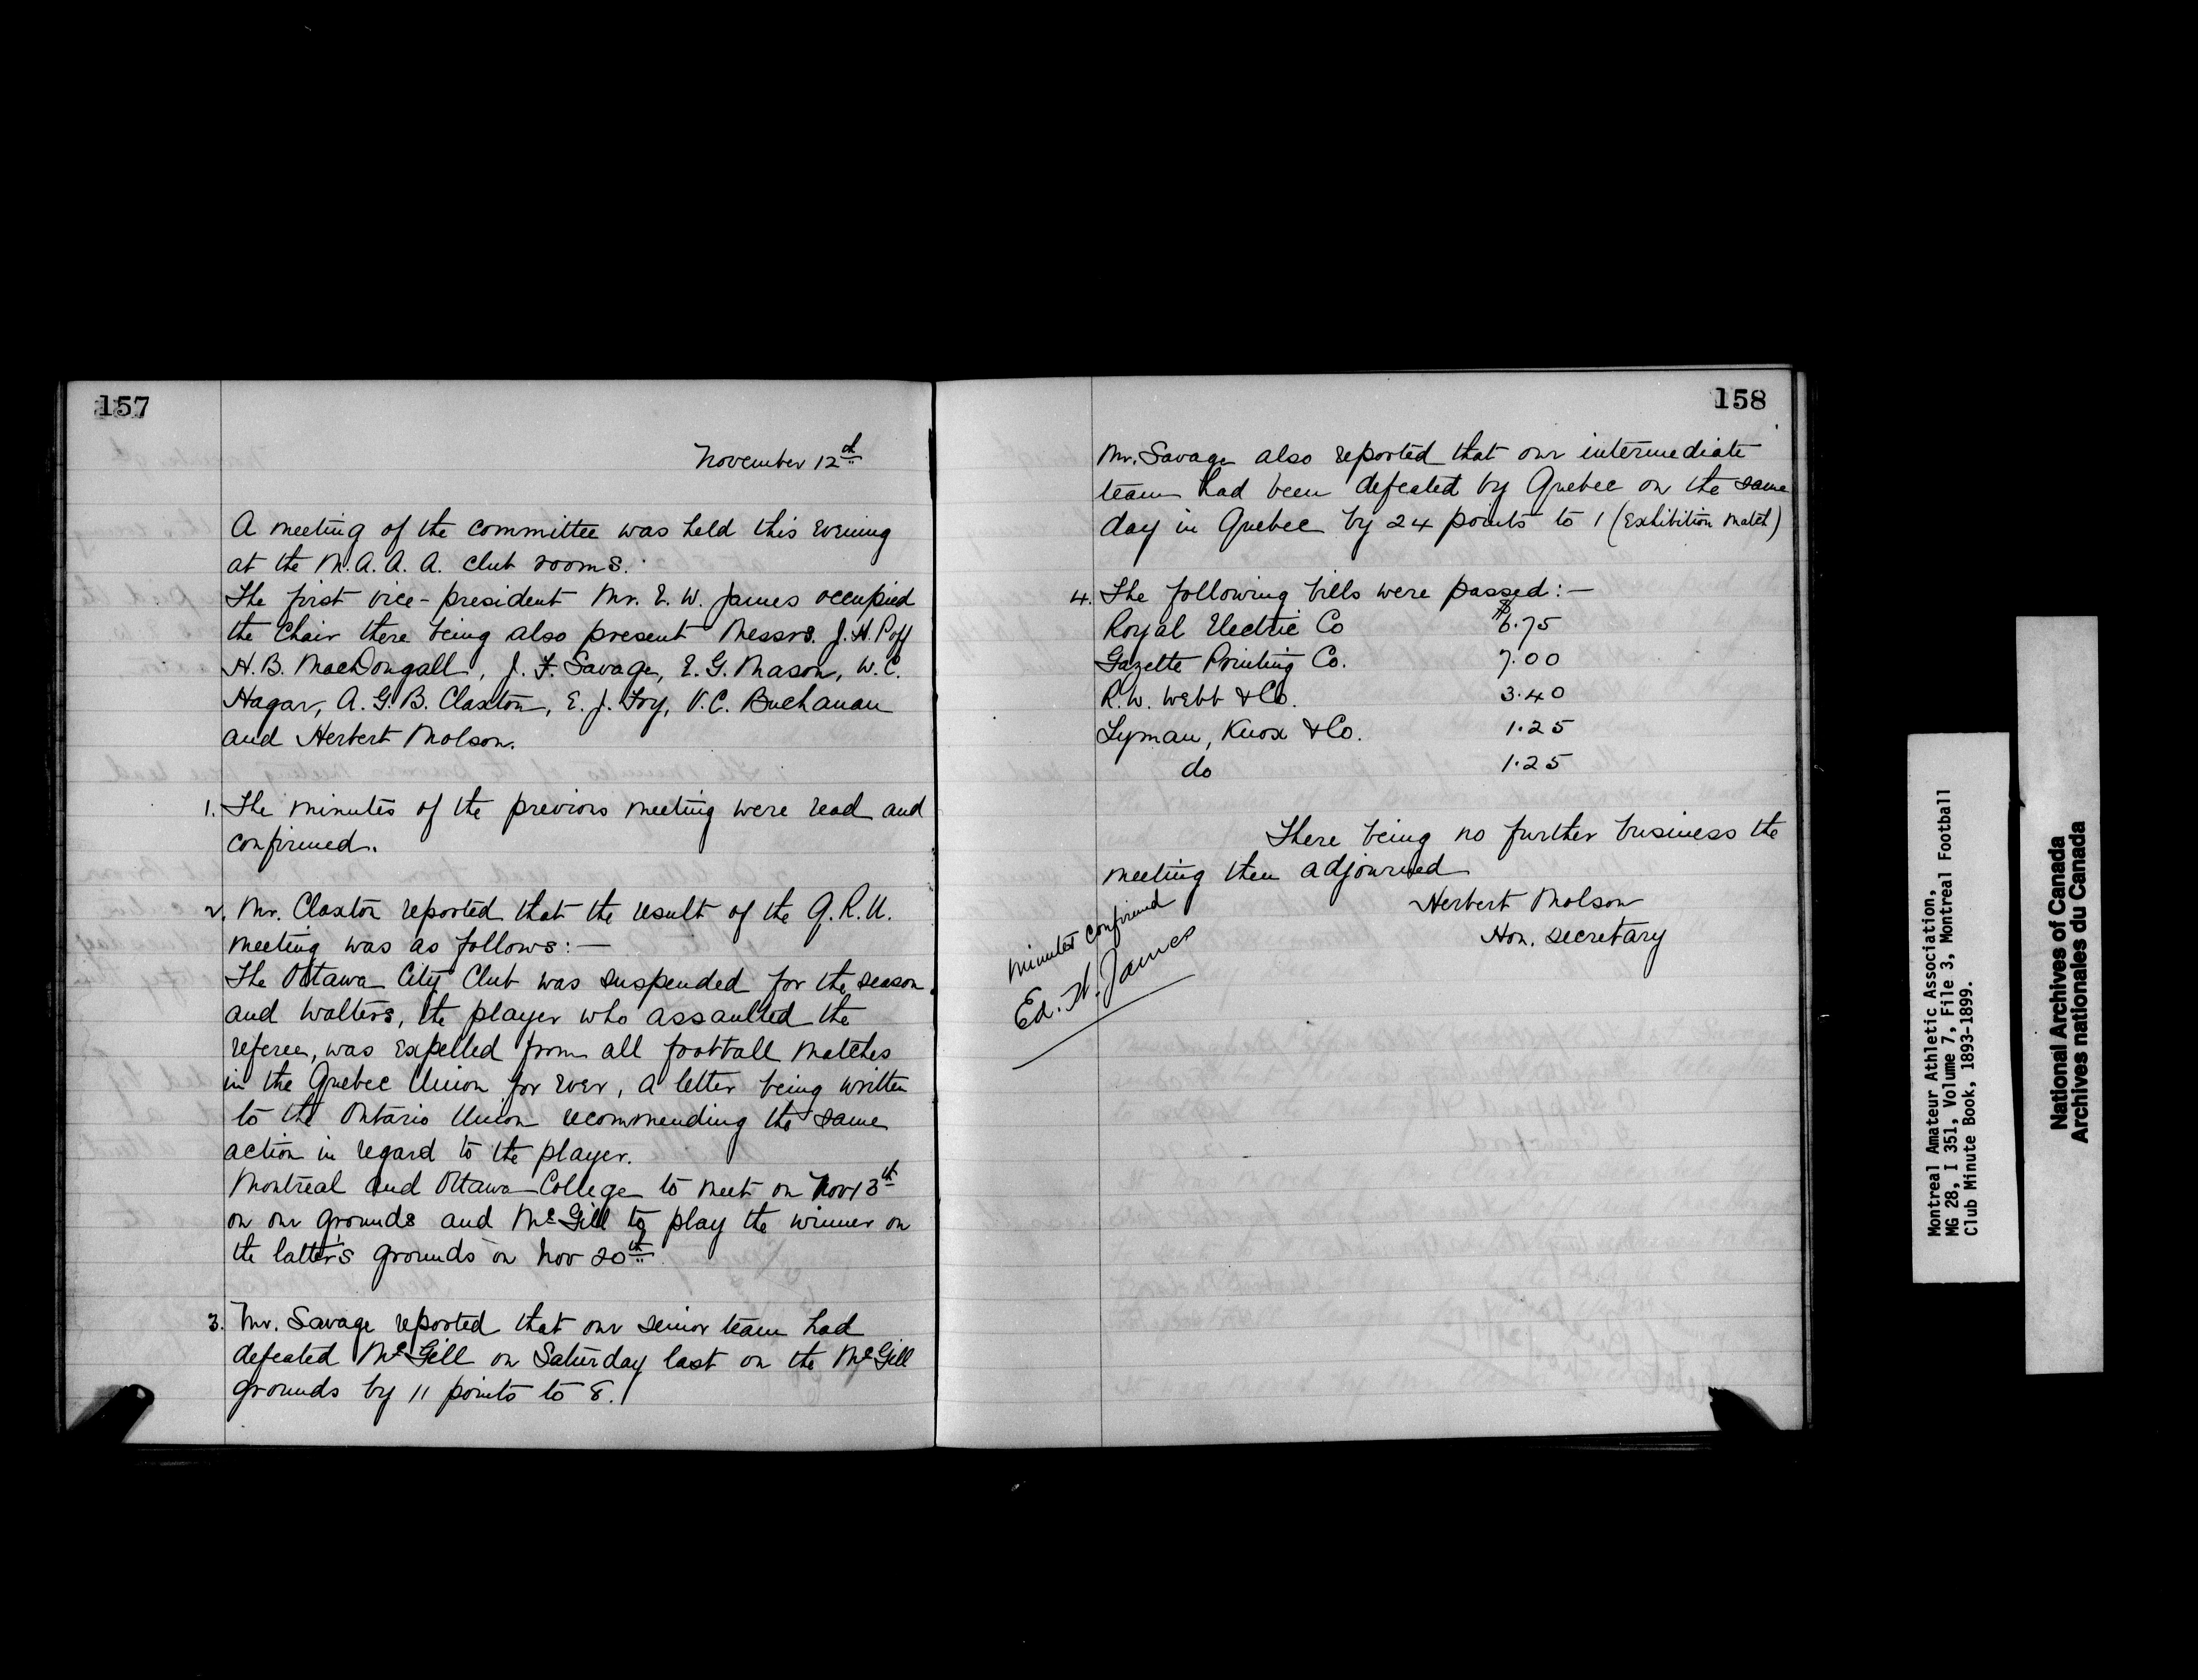 157
November 12th
A meeting of the committee was held this evening
at the M.A.A.A. club rooms.
The first vice-president Mr. E. W. James occupied
the chair there being also present Messrs. J. H. Poff
H. B. MacDougall, J. F. Savage, E. G. Mason, W. C.
Hagar, A. G. B. Claxton, E. J. Foy, V. C. Buchanan
and Herbert Molson.
1. The minutes of the previous meeting were read and
confirmed.
2. Mr. Claxton reported that the result of the Q.R.U.
meeting was as follows:—
The Ottawa City Club was suspended for the season
and Walters, the player who assaulted the
referee, was expelled from all football matches
in the Quebec Union for ever, a letter being written
to the Ontario Union recommending the same
action in regard to the player.
Montreal and Ottawa College to meet on Nov 13th
on our grounds and McGill to play the winner on
the latter's grounds on Nov 20th
3. Mr. Savage reported that our senior team had
defeated McGill on Saturday last on the McGill
grounds by 11 points to 8.
158
Mr. Savage also reported that our intermediate
team had been defeated by Quebec on the same
day in Quebec by 24 points to 1 (Exhibition match)
4. The following bills were passed:—
Royal Electric Co $6.75
Gazette Printing Co. 7.00
R. W. Webb & Co. 3.40
Lyman, Knox & Co. 1.25
do 1.25
There being no further business the
meeting then adjourned
Herbert Molson
Hon. Secretary
Minutes confirmed
Ed. W. James
Montreal Amateur Athletic Association,
MG 28, I 351, Volume 7, File 3, Montreal Football
Club Minute Book, 1893-1899.
National Archives of Canada
Archives nationales du Canada